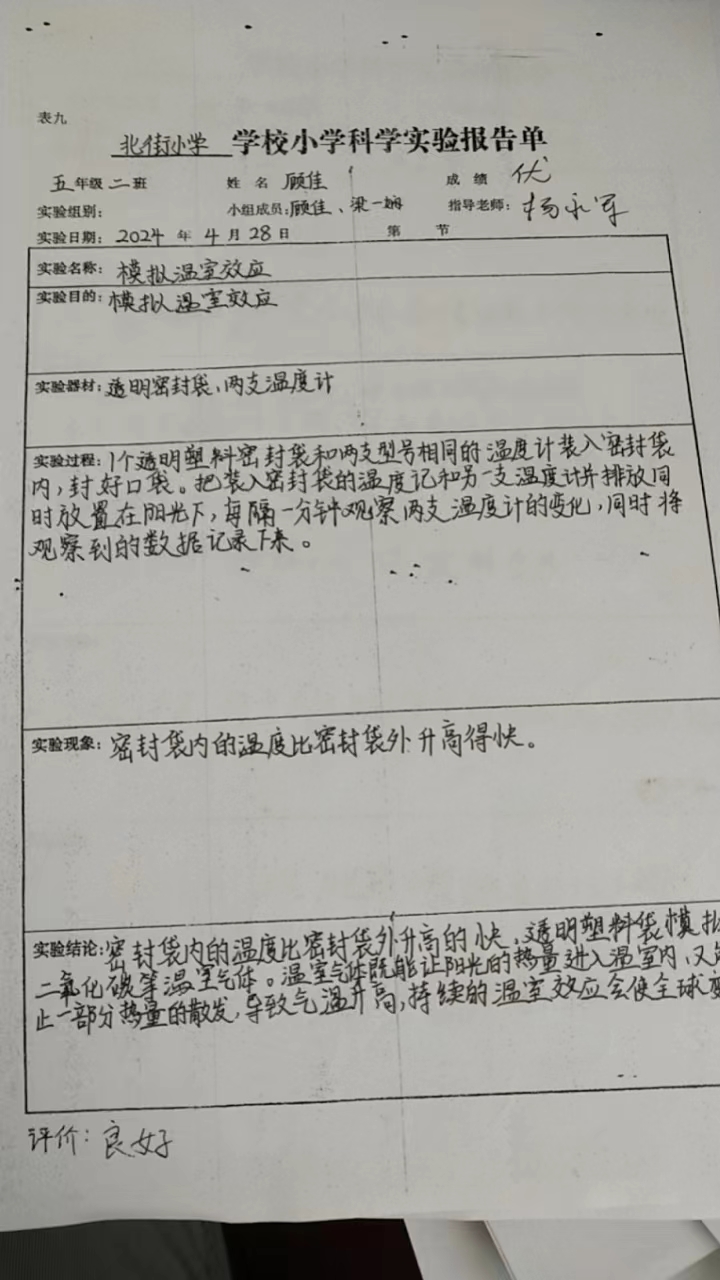 表九
北街小学 学校小学科学实验报告单
五年级二班 姓名 顾佳 成绩 优
实验组别: 小组成员:顾佳、梁一娴 指导老师:杨永军
实验日期:2024年4月28日 第 节
实验名称:模拟温室效应
实验目的:模拟温室效应
实验器材:透明密封袋、两支温度计
实验过程:1个透明塑料密封袋和两支型号相同的温度计装入密封袋
内,封好口袋。把装入密封袋的温度记和另一支温度计并排放同
时放置在阳光下,每隔一分钟观察两支温度计的变化,同时将
观察到的数据记录下来。
实验现象:密封袋内的温度比密封袋外升高得快。
实验结论:密封袋内的温度比密封袋外升高的快,透明塑料袋模拟
二氧化碳等温室气体。温室气体既能让阳光的热量进入温室内,又
止一部分热量的散发,导致气温升高,持续的温室效应会使全球
评价:良好